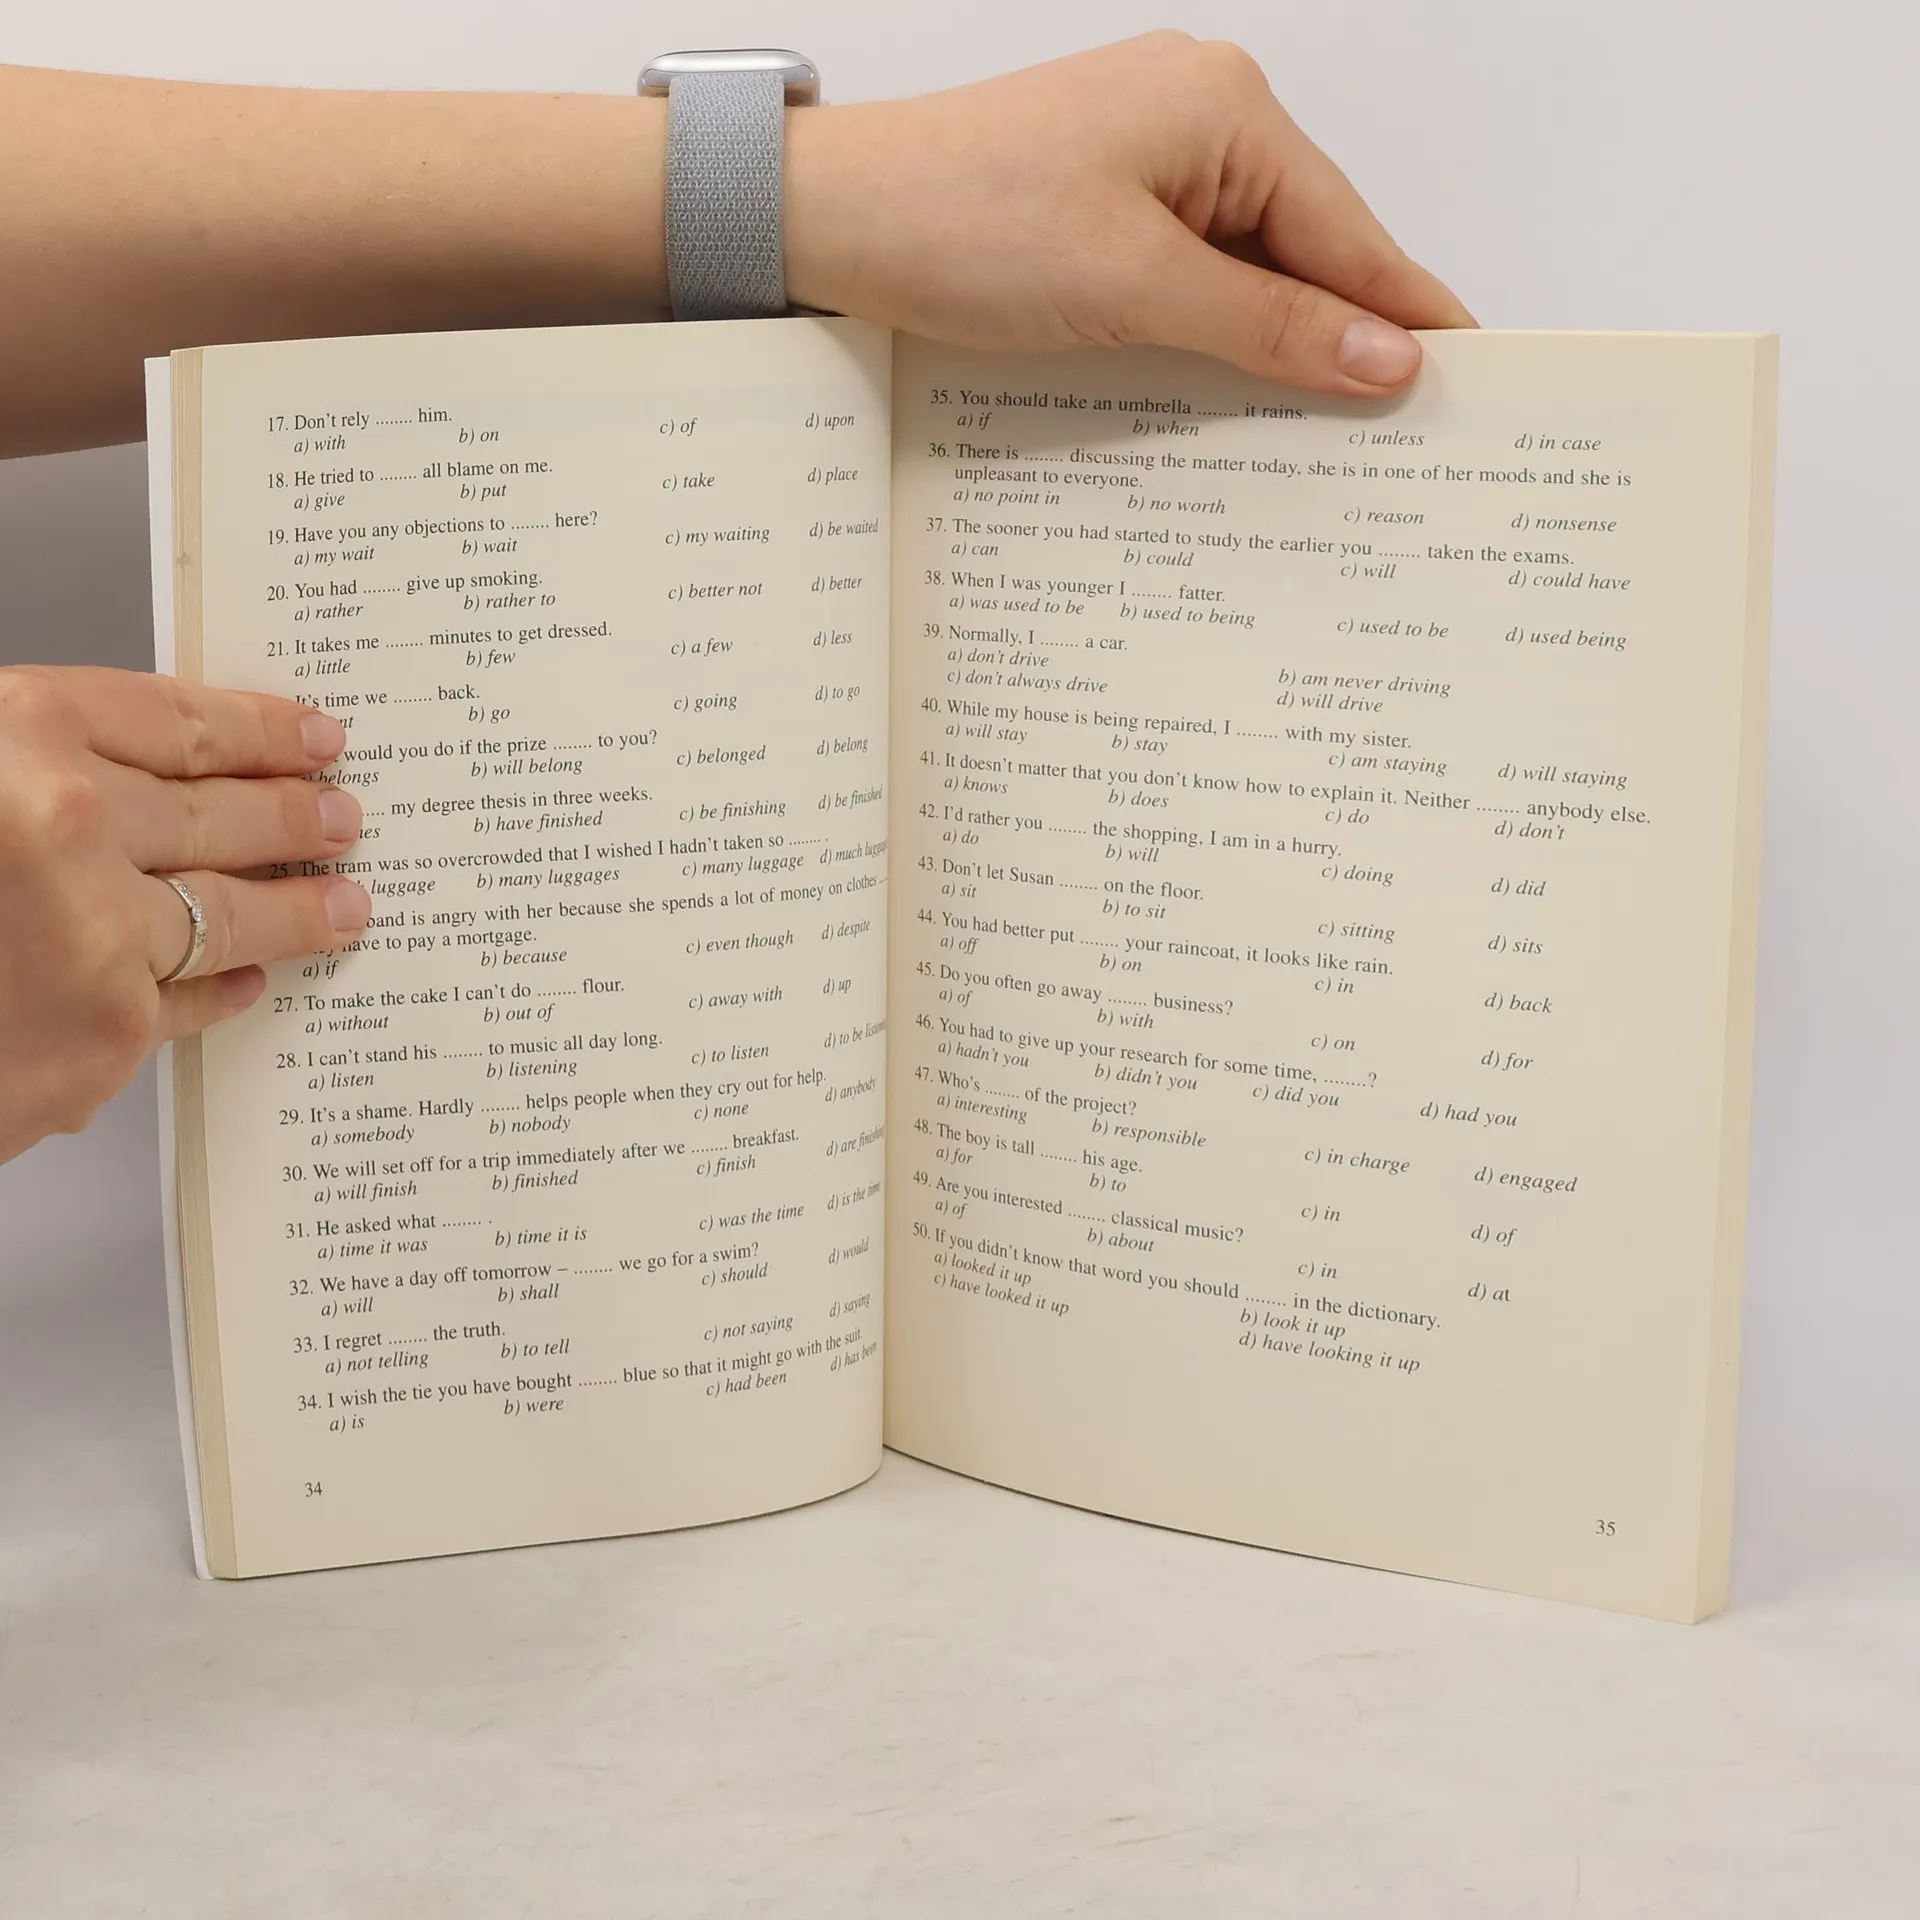 17. Don't rely ........ him.
a) with b) on c) of d) upon
18. He tried to ........ all blame on me.
a) give b) put c) take d) place
19. Have you any objections to ........ here?
a) my wait b) wait c) my waiting d) be waited
20. You had ........ give up smoking.
a) rather b) rather to c) better not d) better
21. It takes me ........ minutes to get dressed.
a) little b) few c) a few d) less
It's time we ........ back.
b) go c) going d) to go
would you do if the prize ........ to you?
belongs b) will belong c) belonged d) belong
my degree thesis in three weeks.
b) have finished c) be finishing d) be finished
25. The tram was so overcrowded that I wished I hadn't taken so ........ .
luggage b) many luggages c) many luggage d) much
is angry with her because she spends a lot of money on clothes
have to pay a mortgage.
a) if b) because c) even though d) despite
27. To make the cake I can't do ........ flour.
a) without b) out of c) away with d) up
28. I can't stand his ........ to music all day long.
a) listen b) listening c) to listen d) to be
29. It's a shame. Hardly ........ helps people when they cry out for help.
a) somebody b) nobody c) none d) anybody
30. We will set off for a trip immediately after we ........ breakfast.
a) will finish b) finished c) finish d) are
31. He asked what ........ .
a) time it was b) time it is c) was the time d) is the time
32. We have a day off tomorrow – ........ we go for a swim?
a) will b) shall c) should d) would
33. I regret ........ the truth.
a) not telling b) to tell c) not saying d) saying
34. I wish the tie you have bought ........ blue so that it might go with the suit.
a) is b) were c) had been d) has been
34
35. You should take an umbrella ........ it rains.
a) if b) when c) unless d) in case
36. There is ........ discussing the matter today, she is in one of her moods and she is
unpleasant to everyone.
a) no point in b) no worth c) reason d) nonsense
37. The sooner you had started to study the earlier you ........ taken the exams.
a) can b) could c) will d) could have
38. When I was younger I ........ fatter.
a) was used to be b) used to being c) used to be d) used being
39. Normally, I ........ a car.
a) don't drive b) am never driving
c) don't always drive d) will drive
40. While my house is being repaired, I ........ with my sister.
a) will stay b) stay c) am staying d) will staying
41. It doesn't matter that you don't know how to explain it. Neither ........ anybody else.
a) knows b) does c) do d) don't
42. I'd rather you ........ the shopping, I am in a hurry.
a) do b) will c) doing d) did
43. Don't let Susan ........ on the floor.
a) sit b) to sit c) sitting d) sits
44. You had better put ........ your raincoat, it looks like rain.
a) off b) on c) in d) back
45. Do you often go away ........ business?
a) of b) with c) on d) for
46. You had to give up your research for some time, ........?
a) hadn't you b) didn't you c) did you d) had you
47. Who's ........ of the project?
a) interesting b) responsible c) in charge d) engaged
48. The boy is tall ........ his age.
a) for b) to c) in d) of
49. Are you interested ........ classical music?
a) of b) about c) in d) at
50. If you didn't know that word you should ........ in the dictionary.
a) looked it up b) look it up
c) have looked it up d) have looking it up
35